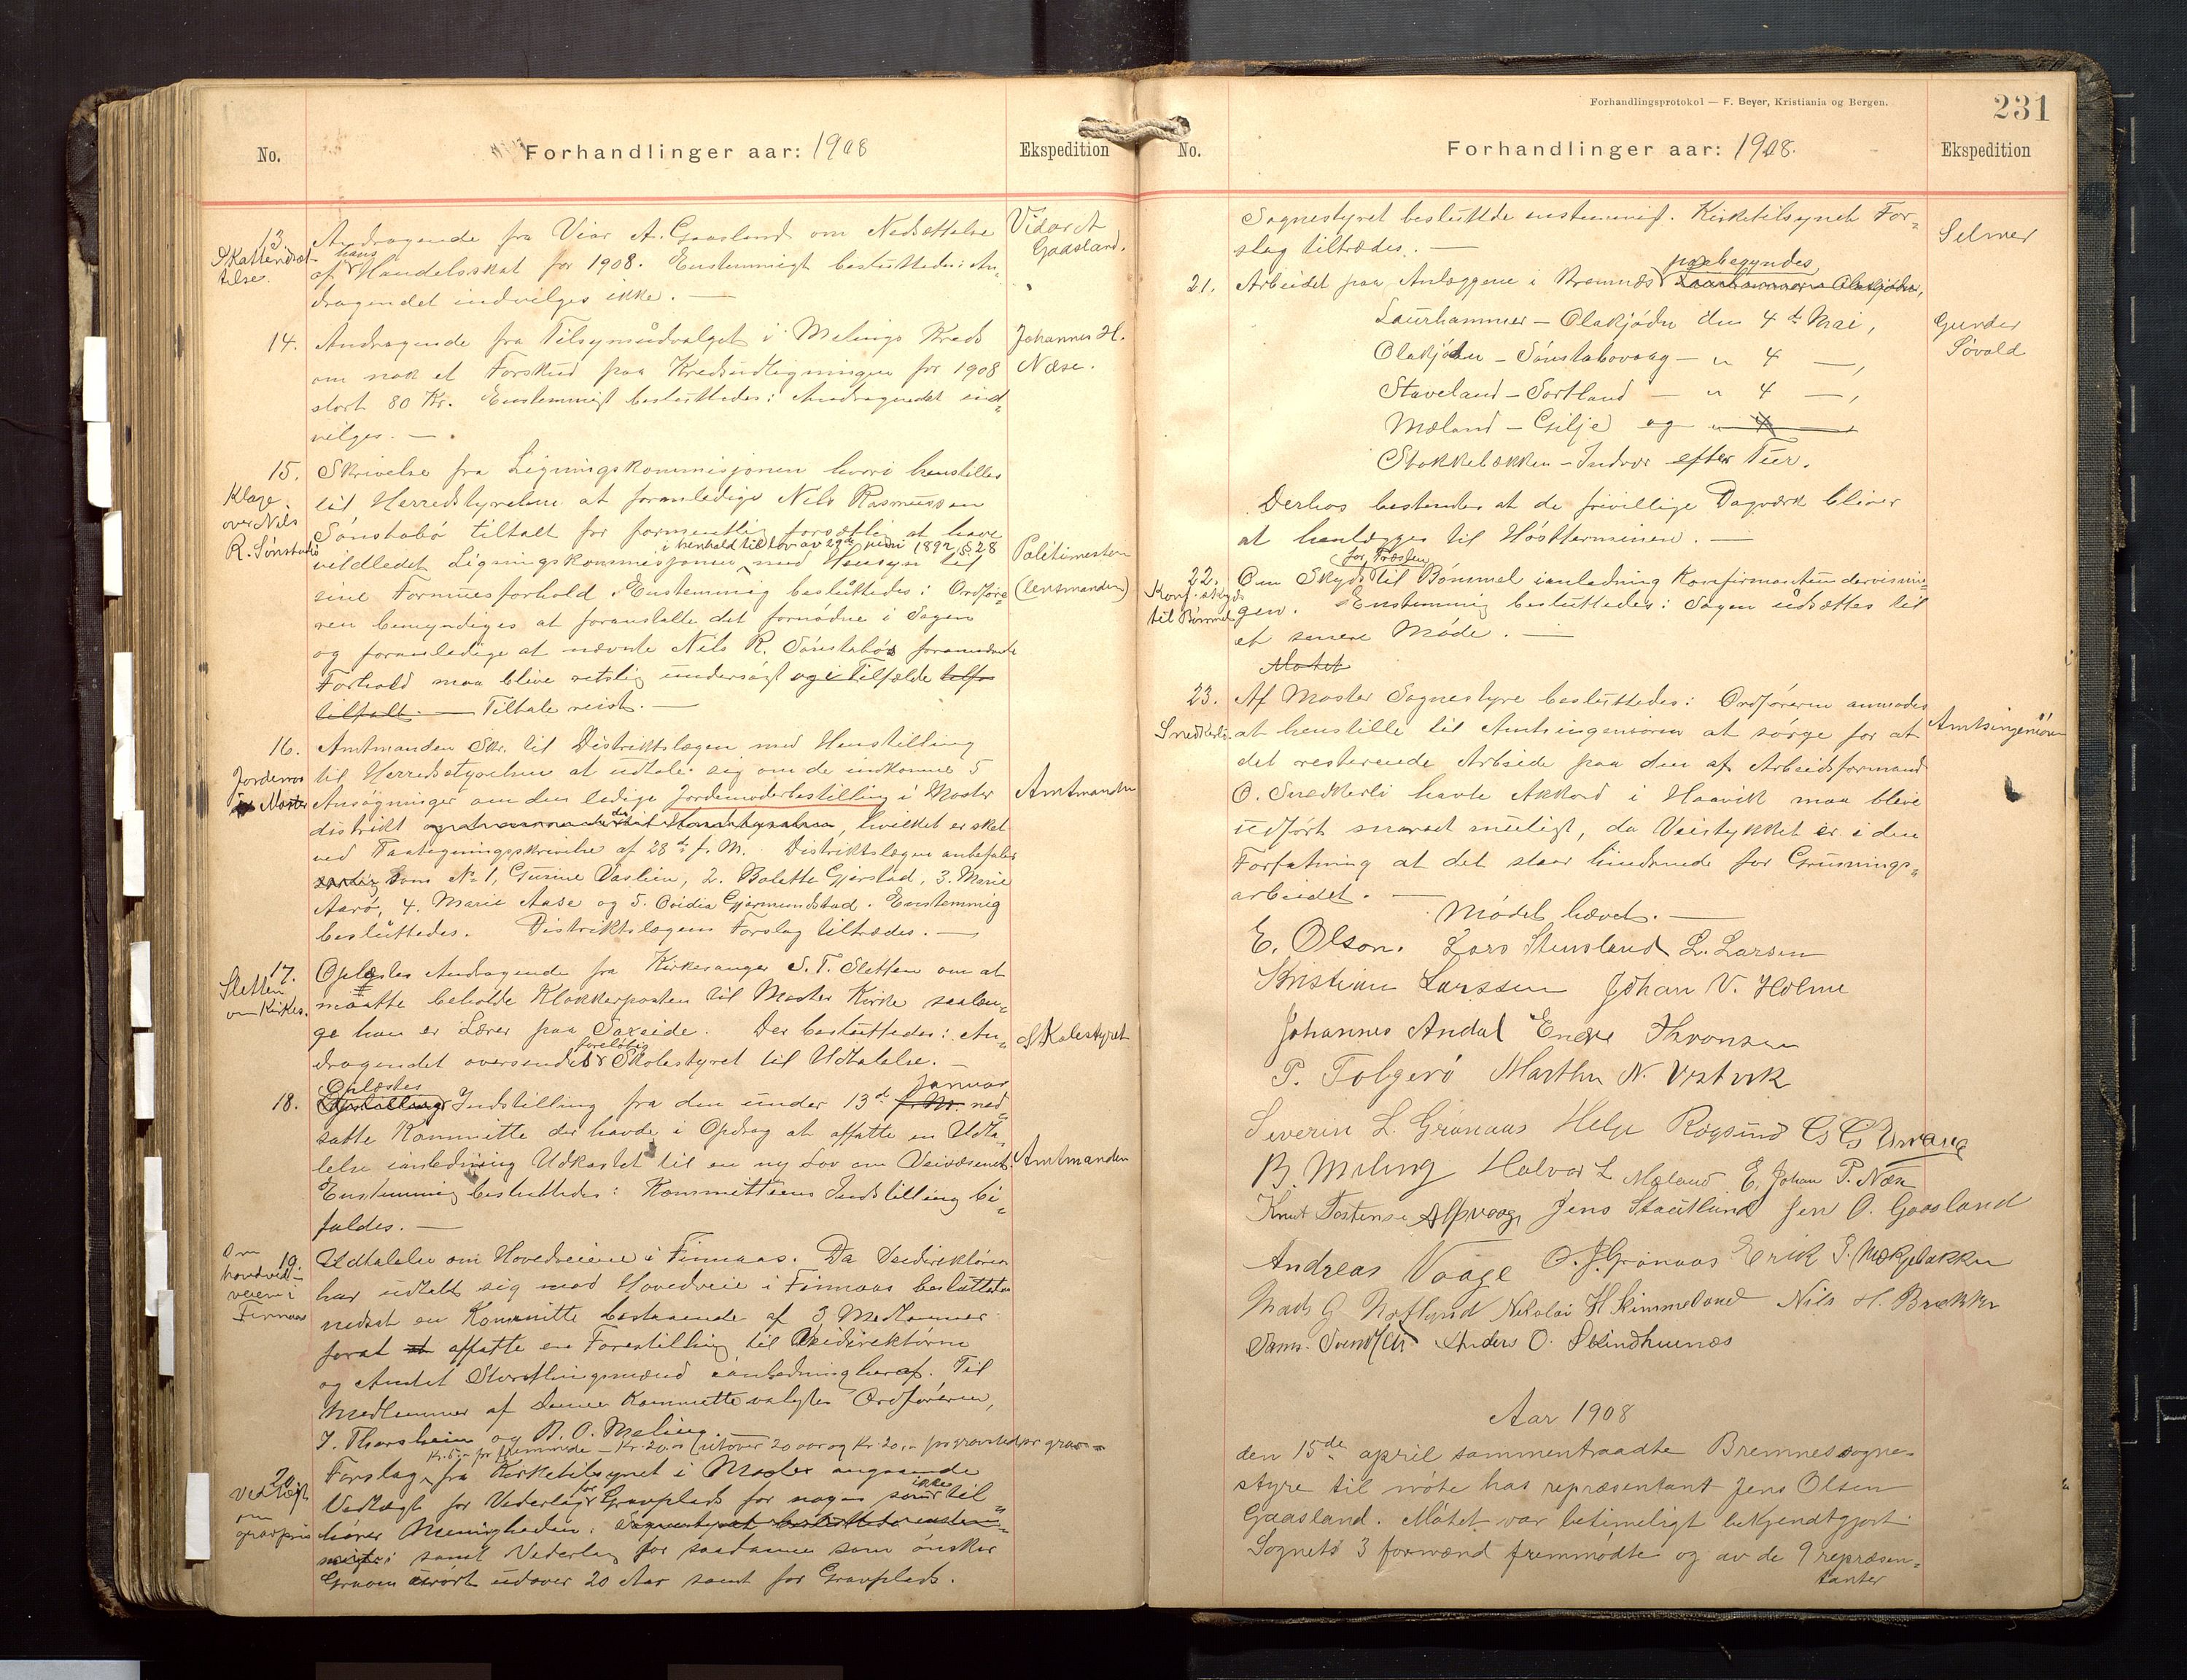 No.
Forhandlinger aar: 1908
Ekspedition
13.
Skattenedsættelse.
Andragende fra Viar A. Gaasland om Nedsættelse
af hans Handelsskat for 1908. Enstemmigt besluttedes: An-
dragendet indvilges ikke. —
Vidar A
Gaasland.
14.
Andragende fra Tilsynsudvalget i Melings Kreds
om nok et Forskud paa Kredsudligningen for 1908
stort 80 Kr. Enstemmigt besluttedes: Andragendet ind-
vilges. —
Johannes H.
Næse.
15.
Klage
over Nils
R. Sønstabø
Skrivelse fra Ligningskommisjonen hvori henstilles
til Herredstyrelsen at foranledige Nils Rasmussen
Sønstabø tiltalt for formentlig forsætlig at have
i henhold til lov av 29de juni 1892 § 28
vildledet Ligningskommisjonen med Hensyn til
sine Formuesforhold. Enstemmig besluttedes: Ordføre-
ren bemyndiges at foranstalte det fornødne i Sagen
og foranledige at nævnte Nils R. Sønstabøs foranævnte
Forhold maa blive retslig undersøgt og i Tilfælde
Tiltale reist. —
Politimesteren
(lensmanden)
16.
Jordemor
Moster
Amtmanden Skr. til Distriktslægen med Henstilling
til Herredsstyrelsen at udtale sig om de indkomne 5
Ansøgninger om den ledige Jordemoderbestilling i Moster
distrikt, hvilket er sket
ved Paategningsskrivelse af 28de f. M. Distriktslægen anbefaler
som No 1, Gurine Vaslien, 2. Bolette Gjerstad, 3. Marie
Aarø, 4. Marie Aase og 5. Ovidia Gjermundstad. Enstemmig
besluttedes. Distriktslægens Forslag tiltrædes. —
Amtmanden
17.
Sletten
om Kirkes.
Oplæstes Andragende fra Kirkesanger S. T. Sletten om at
maatte beholde Klokkerposten til Moster Kirke saalæn-
ge han er Lærer paa Sakseide. Der besluttedes: An-
dragendet oversendes foreløbig Skolestyret til Udtalelse. —
Skolestyret
18.
Oplæstes Indstilling fra den under 13de Januar ned-
satte Kommitte der havde i Opdrag at affatte en Udta-
lelse ianledning Udkastet til en ny Lov om Veivæsenet.
Enstemmig besluttedes: Kommitteens Indstilling bi-
faldes. —
Amtmanden
19.
Om
hovedveien i
Finnaas
Udtalelse om Hovedveiene i Finnaas. Da Veidirektøren
har udtalt sig mod Hovedveie i Finnaas besluttedes
nedsat en Kommitte bestaaende af 3 Medlemmer
forat affatte en Forestilling til Veidirektørne
og Amtet Storthingsmænd ianledning heraf. Til
Medlemmer af denne Kommitte valgtes Ordføreren,
I. Thorsheim og B. O. Meling. —
Kr. 5,- for fremmede — Kr. 20.00 (utover 20 aar og Kr. 20,- pr gravsted pr grav -
20.
Vedtægt
om
gravpris
Forslag fra Kirketilsynet i Moster angaaende
Vedtægt for Vederlag for Gravplads for nogen som ikke til-
hører Menigheden.
samt Vederlag for saadanne som ønsker
Graven urørt udover 20 Aar samt for Gravplads.
Forhandlingsprotokol — F. Beyer, Kristiania og Bergen.
231
No.
Forhandlinger aar: 1908.
Ekspedition
Sognestyret besluttede enstemmigt. Kirketilsynets For-
slag tiltrædes. —
Selmer
21.
Arbeidet paa Anlæggene i Bremnæs paabegyndes
Laurhammer — Olakjødn den 4de Mai,
Olakjødn — Sønstabøvaag — " 4 —,
Staveland — Sortland — " 4 —,
Mæland — Gilje og
Stokkebækken — Indvær efter Tur.
Derhos bestemtes at de frivillige Dagværk bliver
at henlægges til Høstterminen. —
Gunder
Søvold
22.
Konf. skyds
til Bømmel
Om Skyds for Præsten til Bømmel ianledning Konfirmantundervisnin-
gen. Enstemmig besluttedes: Sagen udsættes til
et senere Møde. —
Møtet
23.
Snedkerli
Af Moster Sognestyre besluttedes: Ordføreren anmodes
at henstille til Amtsingeniøren at sørge for at
det resterende Arbeide paa den af Arbeidsformand
O. Snedkerli havte Akkord i Haavik maa blive
udført snarest muligt, da Veistykket er i den
Forfatning at det staar hindrende for Grusnings-
arbeidet. —
Amtsingeniøren
Mødet hævet. —
E. Olson. Lars Stensland L. Larsen
Kristian Larssen Johan V. Holme
Johannes Andal Endre Thronsen
P. Folgerø Marthin N. Vestvik
Severin L. Grønaas Helge Røgsund
B. Meling Halvor L Mæland E. Johan P. Næse
Knut Tostensen Alfvaag Jens Stautland Jens O. Gaasland
Andreas Vaage O. J. Grønaas Erik T. Mækjebakken
Mads G Notland Nikolai H Rimmeland Nils H. Brekke
Sams. Svendsen Anders O. Skindhuenæs
Aar 1908
den 15de april sammentraadte Bremnes sogne-
styre til møte hos repræsentant Jens Olsen
Gaasland. Møtet var betimeligt bekjendtgjort.
Sognets 3 formænd fremmødte og av de 9 repræsen-
tanter